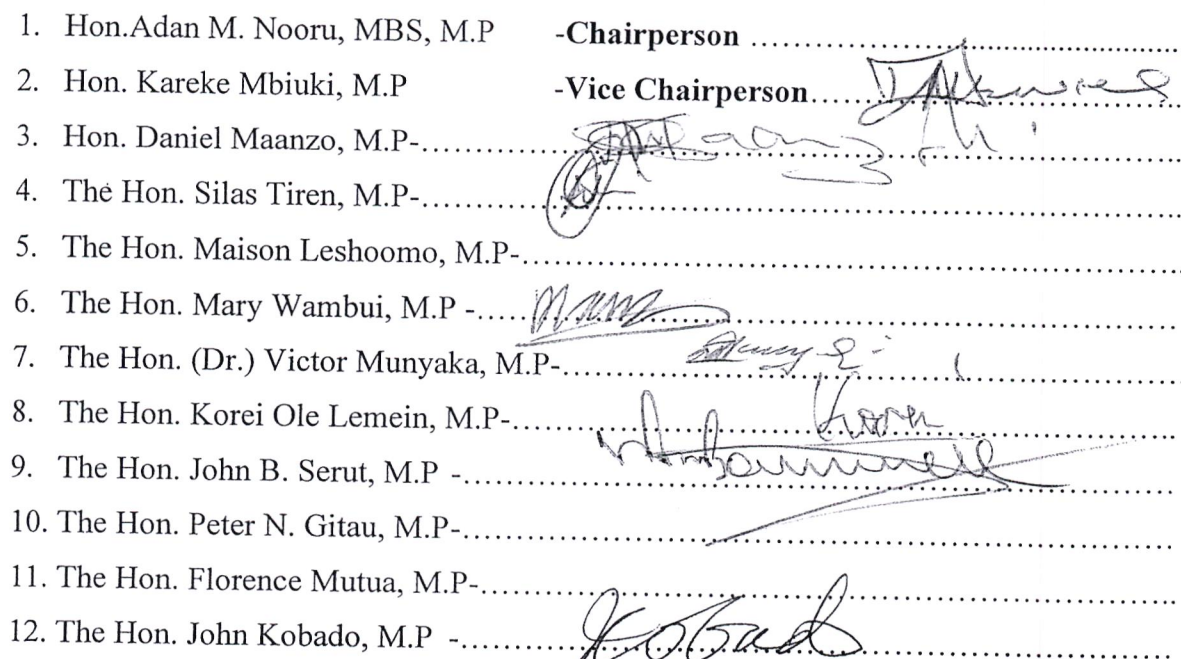 1. Hon.Adan M. Nooru, MBS, M.P -Chairperson ..........................................................
2. Hon. Kareke Mbiuki, M.P -Vice Chairperson..........................................................
3. Hon. Daniel Maanzo, M.P-..........................................................
4. The Hon. Silas Tiren, M.P-..........................................................
5. The Hon. Maison Leshoomo, M.P-..........................................................
6. The Hon. Mary Wambui, M.P -..........................................................
7. The Hon. (Dr.) Victor Munyaka, M.P-..........................................................
8. The Hon. Korei Ole Lemein, M.P-.......................................................... Korei
9. The Hon. John B. Serut, M.P -..........................................................
10. The Hon. Peter N. Gitau, M.P-..........................................................
11. The Hon. Florence Mutua, M.P-..........................................................
12. The Hon. John Kobado, M.P -.......................................................... Kobado